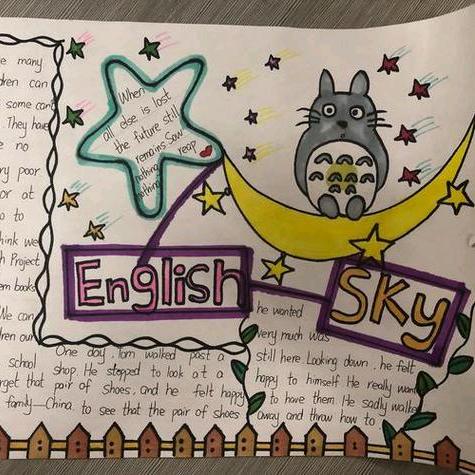 e many
dren can
some can't
They have
e no
ry poor
or at
o to
hink we
h Project
em books
We can
dren our
When
all else is lost
the future still
remains Sow
nothing reap
nothing
English
Sky
One day, Tom walked past a
school shop. He stopped to look at a
rget that pair of Shoes, and he felt happy
family—China. to see that the pair of shoes
he wanted
very much was
still here. Looking down, he felt
happy to himself. He really want
to have them. He sadly walke
away and throw how to